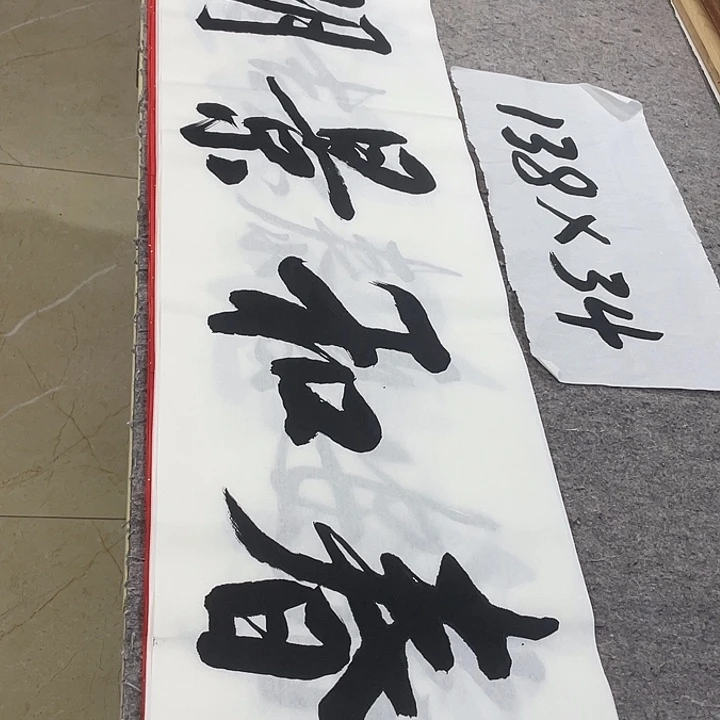 春和景明
138×34